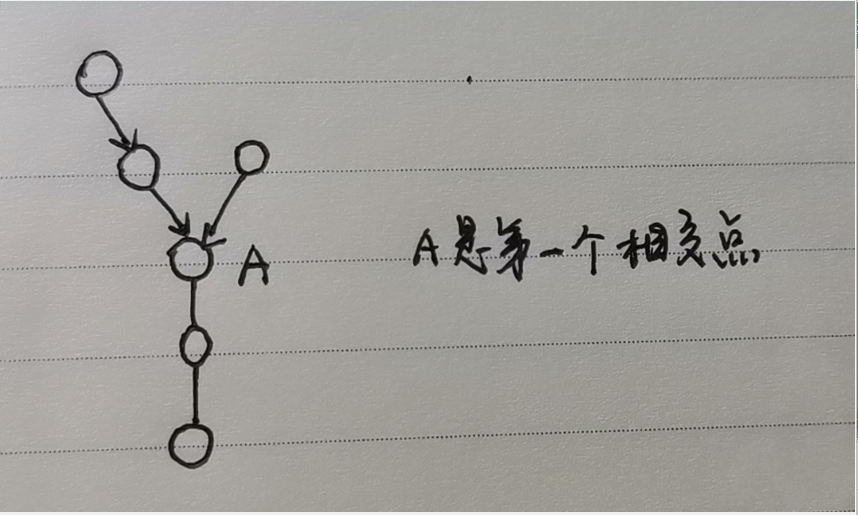 A
A是第一个相交点,